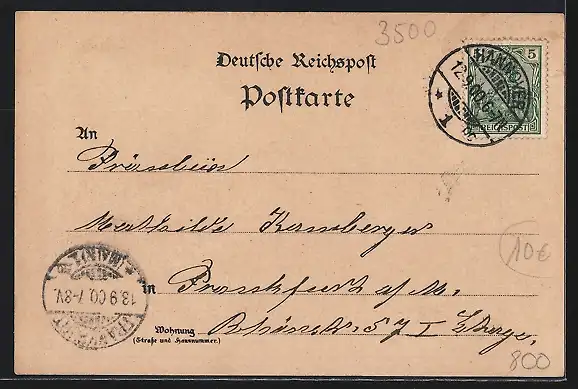 3500
Deutsche Reichspost
Postkarte
5
HANNOVER
12.9.00.6-7N.
* 1 *
REICHSPOST
An
Fräulein
Mathilde
10€
in Frankfurt a/M.
13.9.00.7-8V.
FRANKFURT
(MAIN) 1
Wohnung
(Straße und Hausnummer.)
57 I Etage.
800